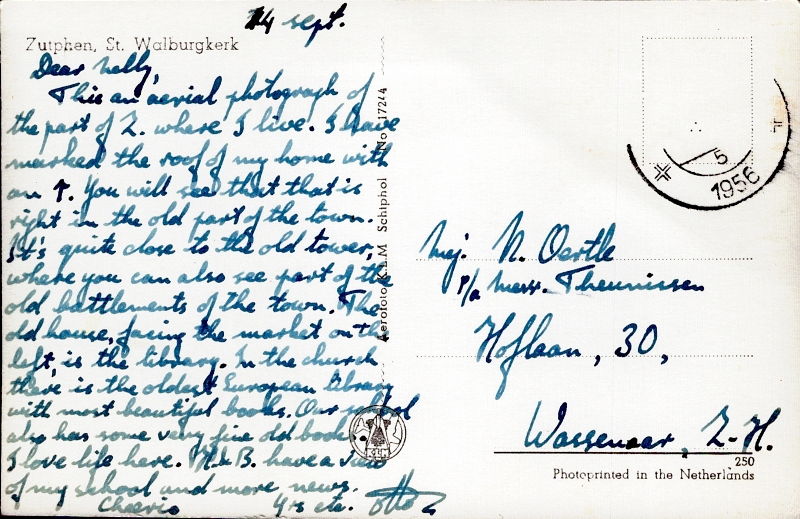 14 sept.
Zutphen, St. Walburgkerk
Dear Nelly,
This an aerial photograph of
the part of Z. where I live. I have
marked the roof of my home with
an ↑. You will see that that is
right in the old part of the town.
It's quite close to the old tower,
where you can also see part of the
old battlements of the town. The
old house, facing the market on the
left, is the library. In the church
there is the oldest European library
with most beautiful books. Our school
also has some very fine old books.
I love life here. M. & B. have a view
of my school and more news.
Cheerio Yrs etc. Otto
Aerofoto K.L.M. Schiphol No. 17244
5
1956
Mej. N. Oertle
p/a Mevr. Theunissen
Hoflaan, 30,
Wassenaar, Z-H.
250
Photoprinted in the Netherlands